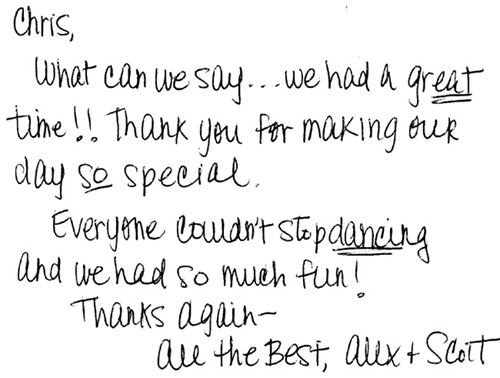 Chris,
What can we say...we had a great
time!! Thank you for making our
day so special.
Everyone couldn't stop dancing
and we had so much fun!
Thanks again-
All the Best, Alex + Scott